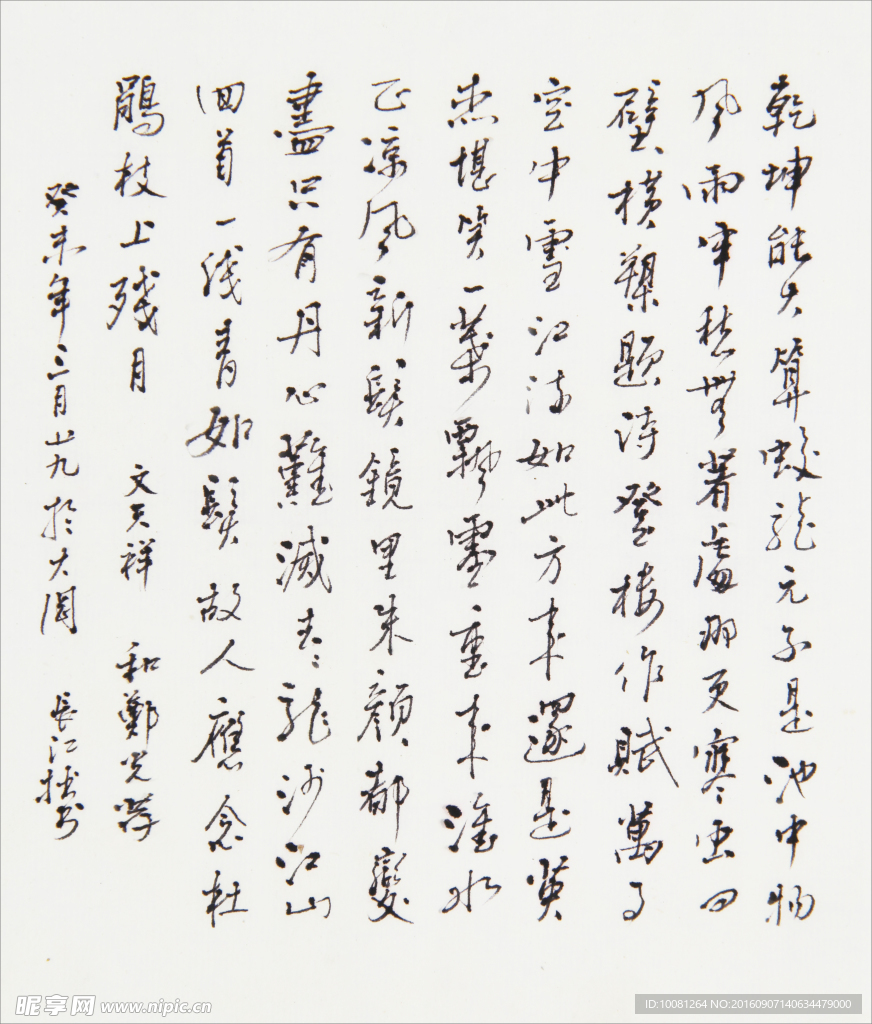 乾坤能大算蛟龍元不是池中物
风雨牢愁無著處那更寒虫四
壁橫槊題詩登樓作賦萬事
空中雪江流如此方来還是英
杰堪笑一葉飄零重来淮水
正涼风新髮鏡里朱顏都變
盡只有丹心難滅去々龍沙江山
回首一线青如髮故人應念杜
鹃枝上残月 文天祥 和鄭光荐
癸未年三月廿九於大 長江
昵享网 www.nipic.cn
ID:10081264 NO:20160907140634479000